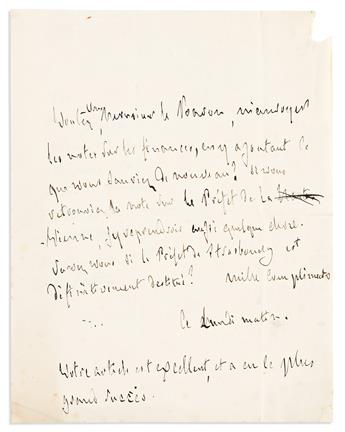 Voulez vous, Monsieur le Baron, m'envoyer
les notes sur les finances, en y ajoutant ce
que vous sauriez de nouveau? Si vous
retrouviez la note sur le Préfet de la
Vienne, j'y reprendrois aussi quelque chose.
Savez vous si le Préfet de Strasbourg est
définitivement destitué? mille complimens
ce lundi matin.
Votre article est excellent, et a eu le plus
grand succès.